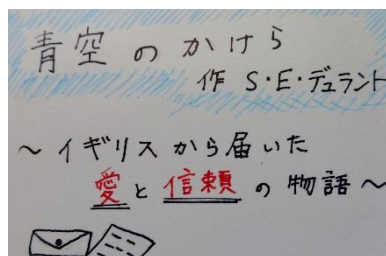 青空のかけら
作 S・E・デュラント
～イギリスから届いた
愛と信頼の物語～